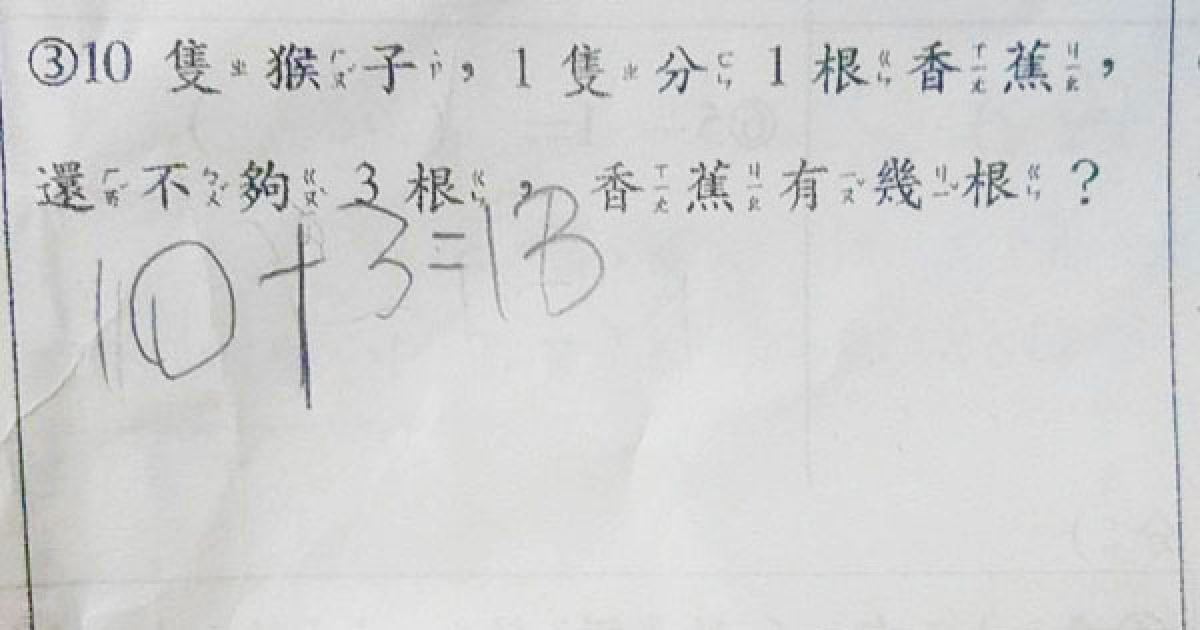 ③10 隻猴子，1 隻分 1 根香蕉，
還不夠 3 根，香蕉有幾根？
10+3=13